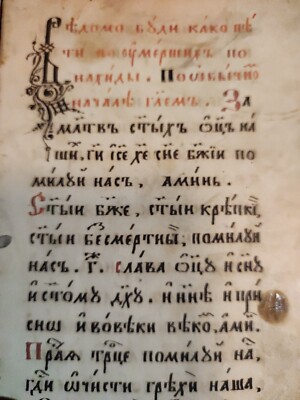 Вѣдомо бꙋди како пѣ
ти по ꙋмершихъ по
нахиды. По ѡбычно
началѣ гл҃емъ. За
мл҃твъ ст҃ыхъ ѻ҆ц҃ъ на
ши, гі҃ ісе҃ хе҃ сн҃е бж҃їи по
милꙋй насъ, аминь.
Ст҃ыи бж҃е, ст҃ыи крѣпкїі,
ст҃ыи бесмертныи, помилꙋи
насъ. г҃. слава ѻ҆ц҃ꙋ и сн҃ꙋ
и ст҃омꙋ дх҃ꙋ. и нн҃ѣ и при
сиѡ и вовѣки вѣкѡ, ами҃.
Пра҃ѧ трц҃е помилꙋй на,
гд҃и ѡчисти грѣхи наша,